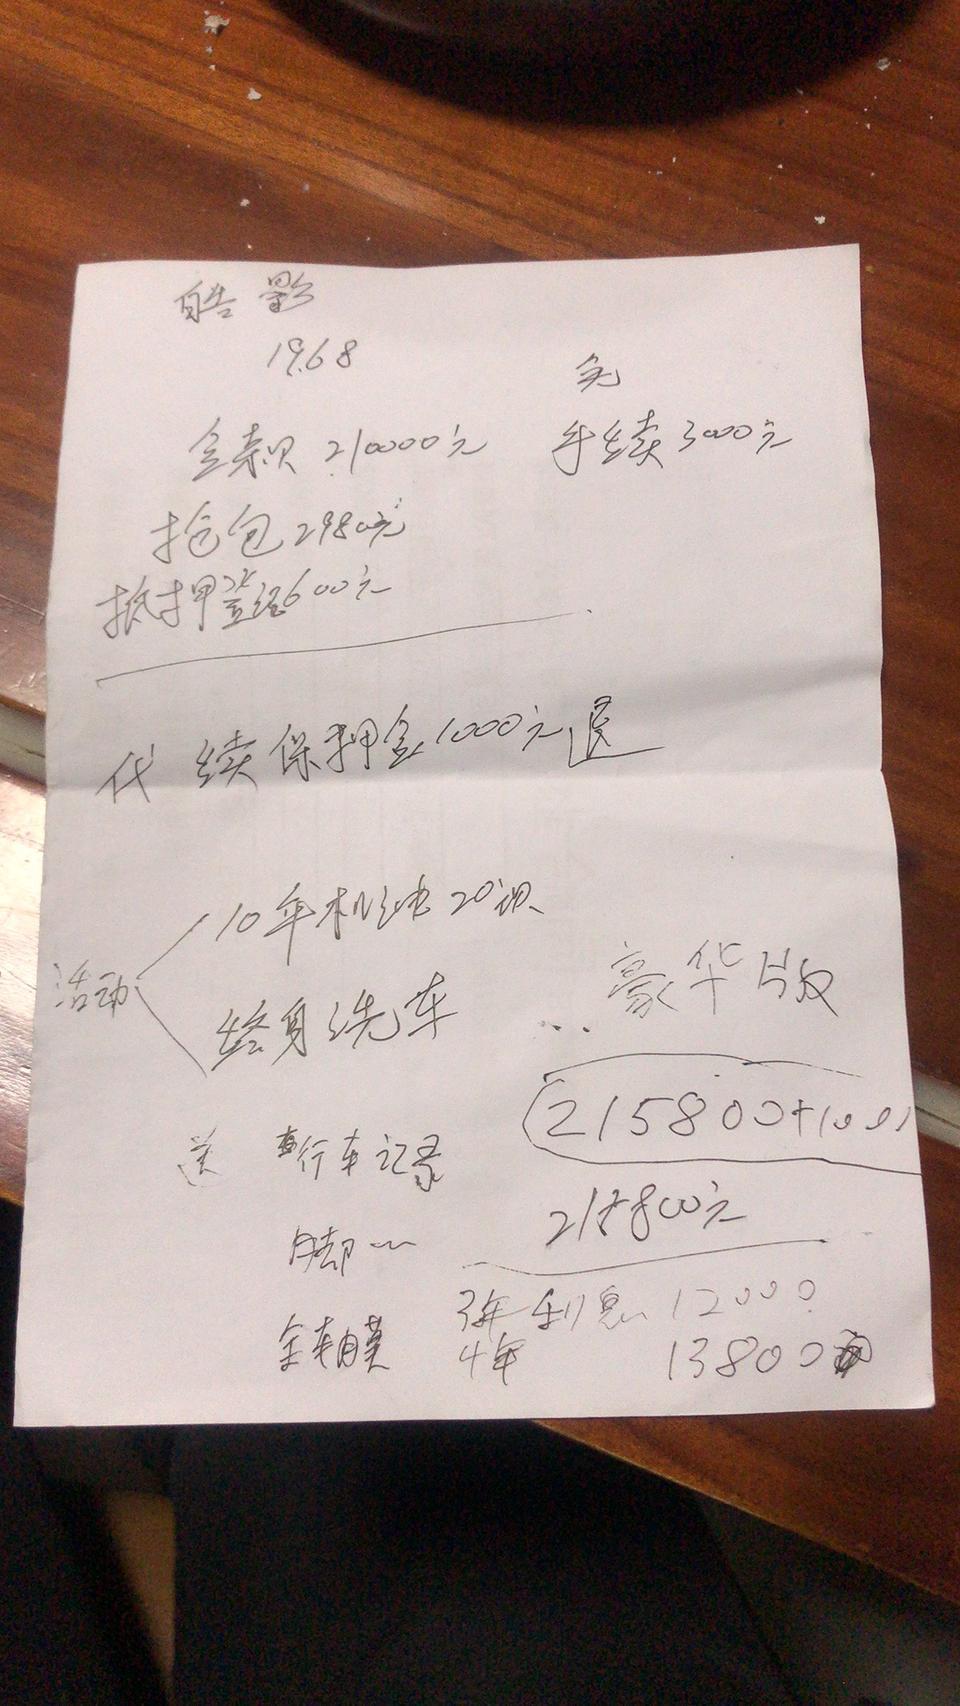 皓影
19.68
免
全款 210000元
手续3000元
抢包2980元
抵押登记600元
代续保押金1000元退
10年机油20次
活动
终身洗车
豪华版
215800+1000
送 行车记录
脚
3年利息 12000
全车膜
4年 13800